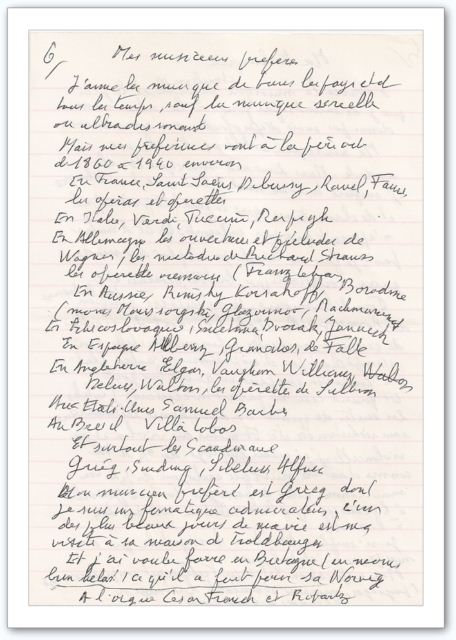 6/ Mes musiciens préférés
J'aime la musique de tous les pays et de
tous les temps, sauf la musique serielle
ou ultradissonant
Mais mes préférences vont à la période
de 1860 à 1940 environ
En France, Saint Saëns, Debussy, Ravel, Faure,
les opéras et opérettes
En Italie, Verdi, Puccini, Respighi
En Allemagne les ouvertures et préludes de
Wagner, les mélodies de Richard Strauss
les operette viennoise (Franz Lehar
En Russie, Rimsky Korsakoff, Borodine
(moins Moussorgsky, Glazounov, Rachmaninoff
En Tchecoslovaquie, Smetana, Dvorak, Janacek
En Espagne Albeniz, Granados, de Falla
En Angleterre Elgar, Vaughan Williams,
Delius, Walton, les opérette de Sullivan
Aux Etats-Unis Samuel Barber
Au Bresil Villa Lobos
Et surtout les Scandinave
Grieg, Sinding, Sibelius, Alfven
Mon musicien préféré est Grieg dont
je suis un fanatique admirateur, l'un
des plus beaux jours de ma vie est ma
visite à sa maison de Troldhaugen
Et j'ai voulu faire en Bretagne (en moins
bien helas) ce qu'il a fait pour sa Norvège
A l'orgue Cesar Franck et Ropartz